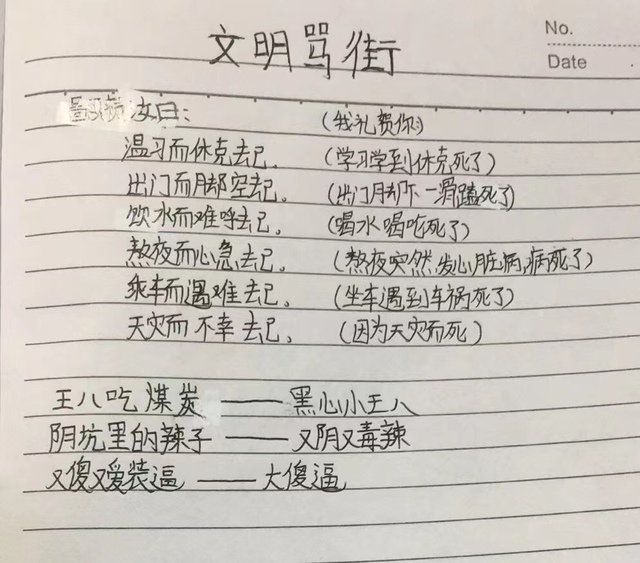 No.
Date
文明骂街
汝曰： （我礼赞你）
温习而休克去已。 （学习学到休克死了）
出门而脚空去已。 （出门脚下一滑磕死了）
饮水而难呼去已。 （喝水喝呛死了）
熬夜而心急去已。 （熬夜突然发心脏病，病死了）
乘车而遇难去已。 （坐车遇到车祸死了）
天灾而不幸去已。 （因为天灾而死）
王八吃煤炭——黑心小王八
阴坑里的辣子——又阴又毒辣
又傻又爱装逼——大傻逼